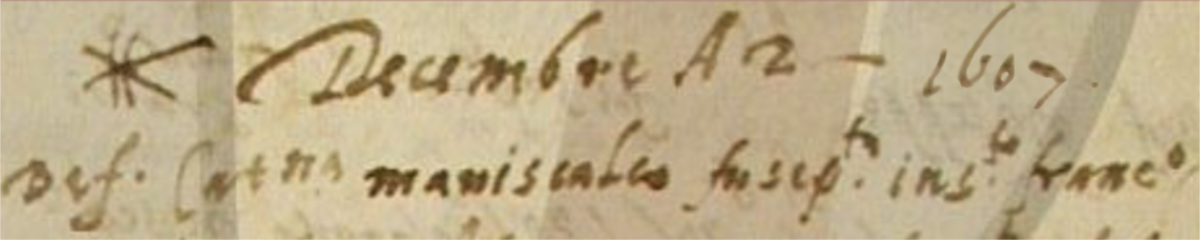 Decembre A 2 — 1607.
Def. Catna maniscalco suscep.to ins.to franc.o